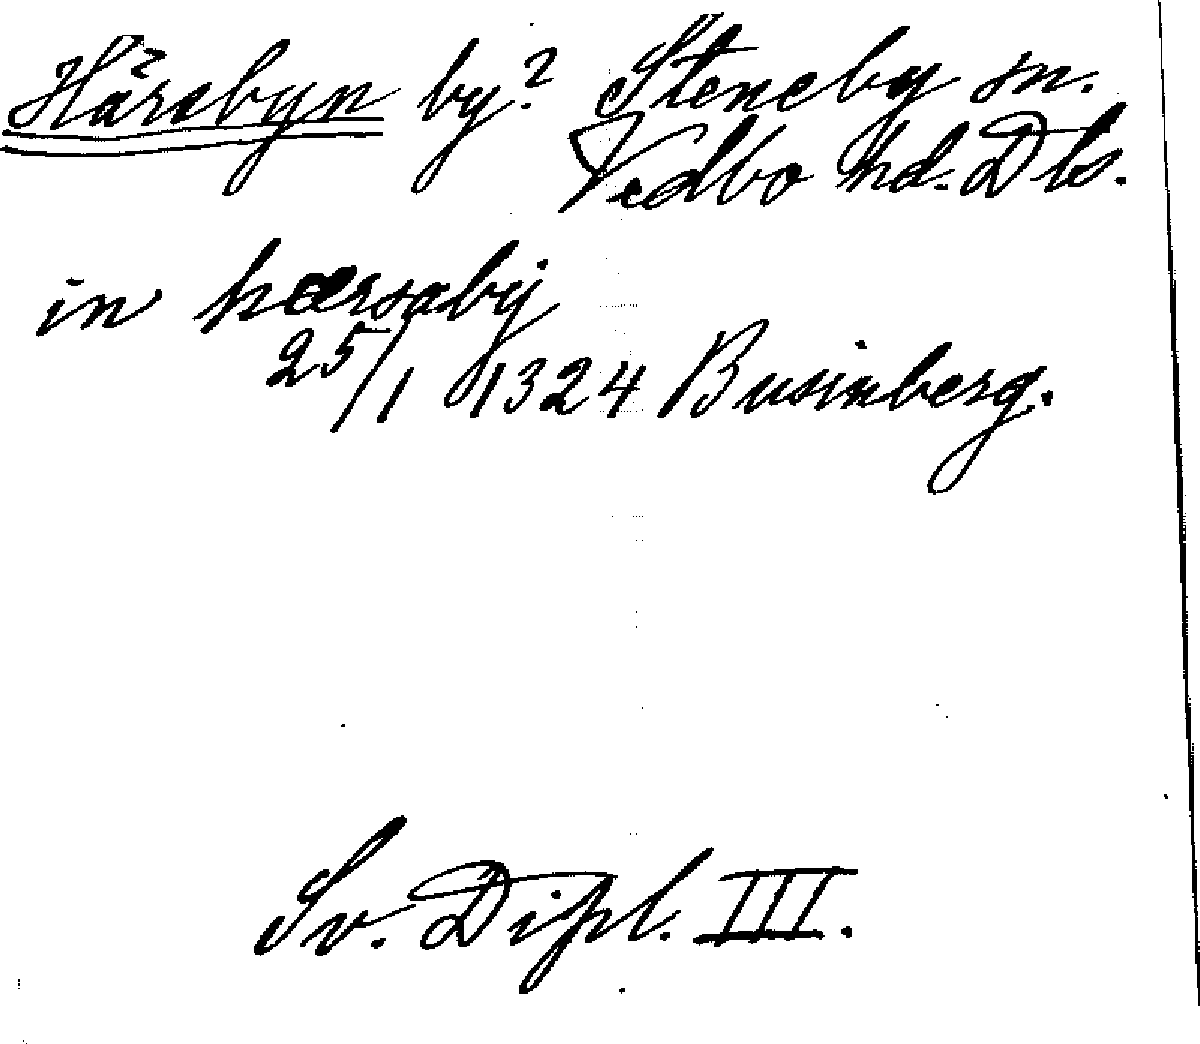 Härsbyn by? Steneby sn.
Vedbo hd. Dls.
in hærsabij
25/1 1324 Businberg.
Sv. Dipl. III.